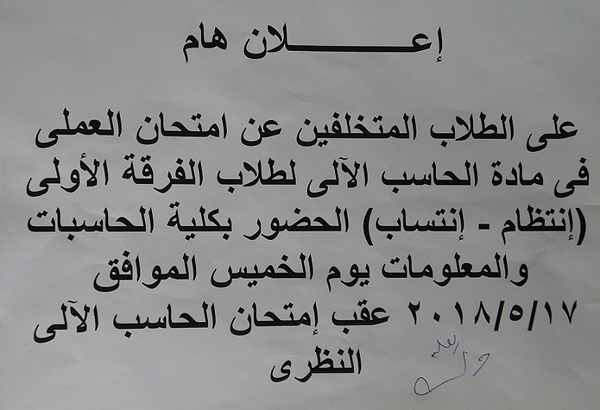 إعـــــــــــلان هام
على الطلاب المتخلفين عن امتحان العملى
فى مادة الحاسب الآلى لطلاب الفرقة الأولى
(إنتظام - إنتساب) الحضور بكلية الحاسبات
والمعلومات يوم الخميس الموافق
٢٠١٨/٥/١٧ عقب إمتحان الحاسب الآلى
النظرى